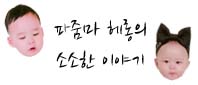 파줌마 헤롱의
소소한 이야기